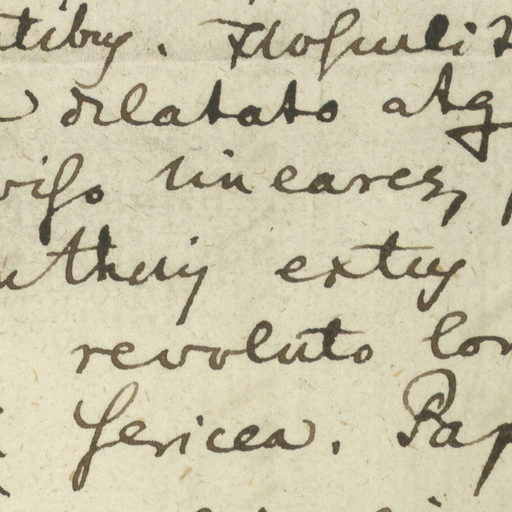 tibus. Flosculis
dilatato atq
viso lineares,
antheris extus
revoluto lon
Sericea. Pap